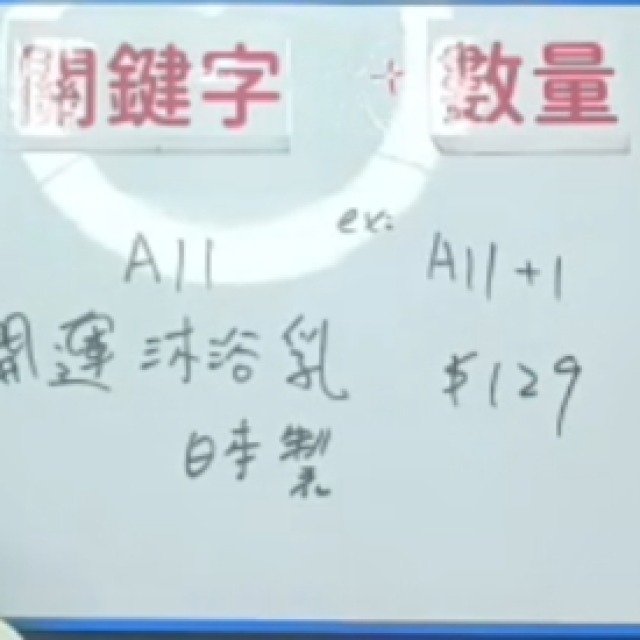 關鍵字 數量
ex:
A11 A11+1
開運沐浴乳 $129
日本製